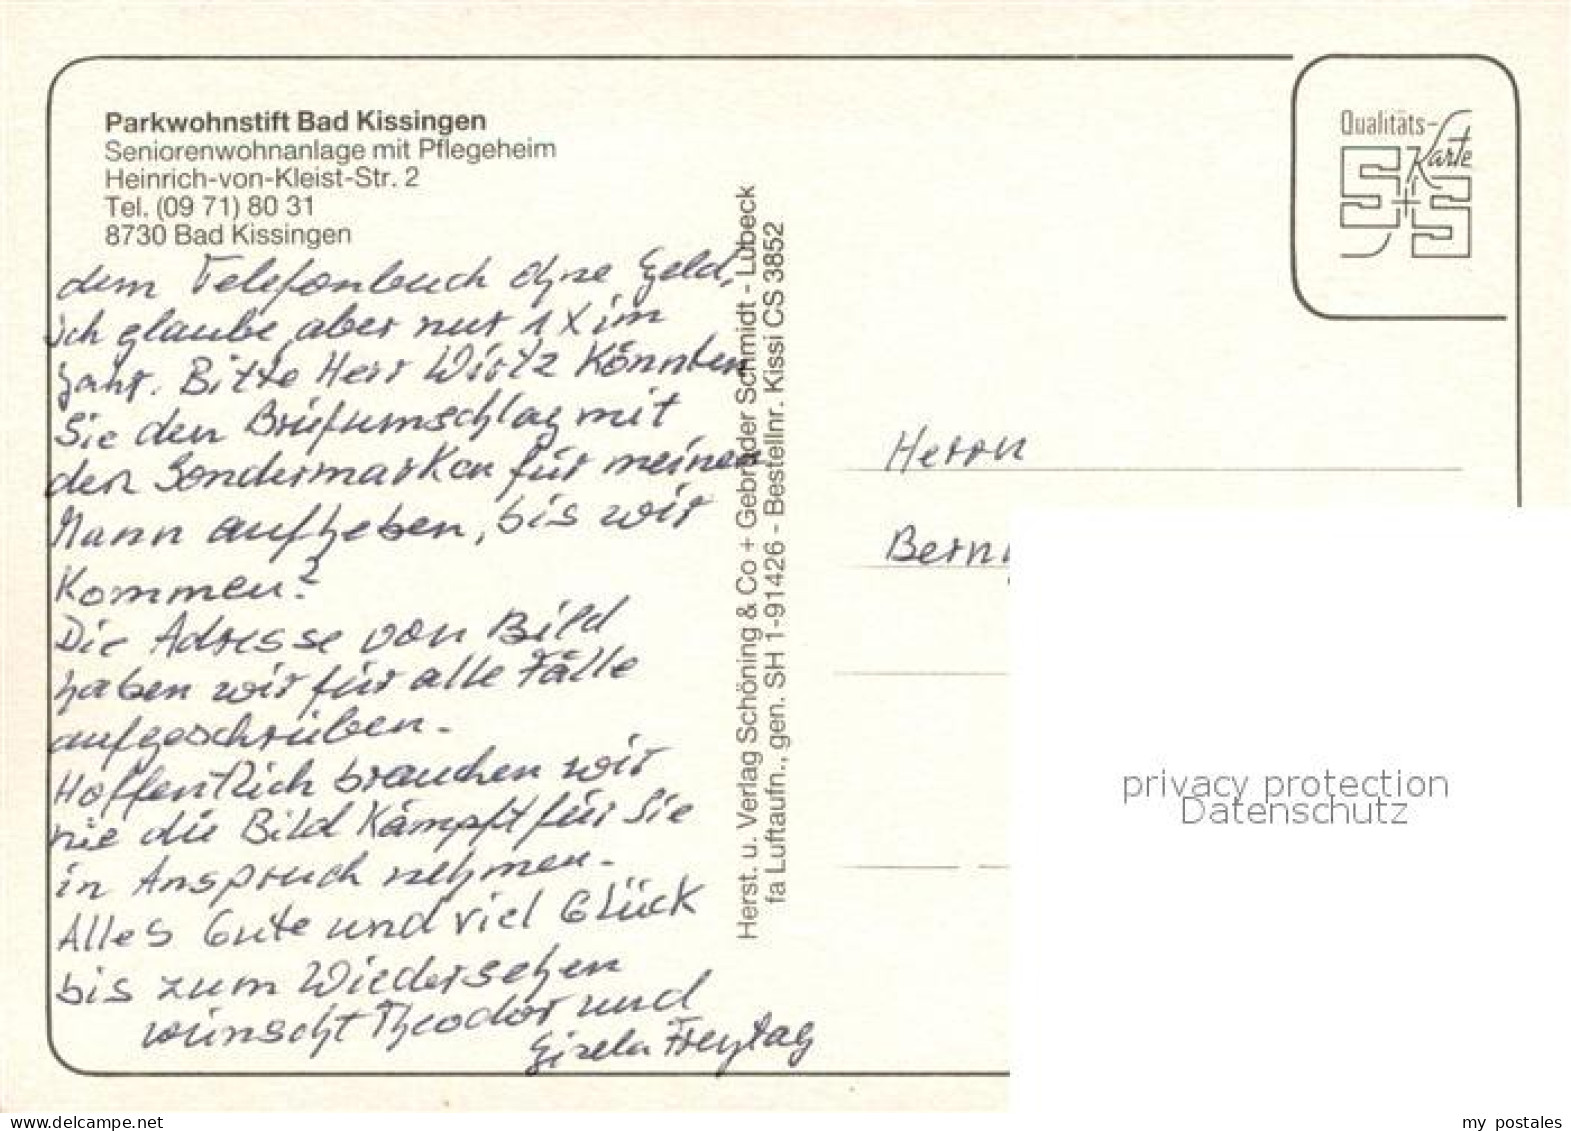 Parkwohnstift Bad Kissingen
Seniorenwohnanlage mit Pflegeheim
Heinrich-von-Kleist-Str. 2
Tel. (09 71) 80 31
8730 Bad Kissingen
dem Telefonbuch ohne Geld,
ich glaube, aber nur 1 X im
Jahr. Bitte Herr Wirtz Könnten
Sie den Briefumschlag mit
den Sondermarken für meinen
Mann aufheben, bis wir
Kommen?
Die Adresse von Bild
haben wir für alle Fälle
aufgeschrieben.
Hoffentlich brauchen wir
nie die Bild Kämpft für Sie
in Anspruch nehmen.
Alles Gute und viel Glück
bis zum Wiedersehen
wünscht Theodor und
Gisela Freytag
Herst. u. Verlag Schöning & Co + Gebrüder Schmidt - Lübeck
fa Luftaufn., gen. SH 1-91426 - Bestellnr. Kissi CS 3852
Qualitäts-
Karte
S+S
Herrn
privacy protection
Datenschutz
www.delcampe.net
my_postales